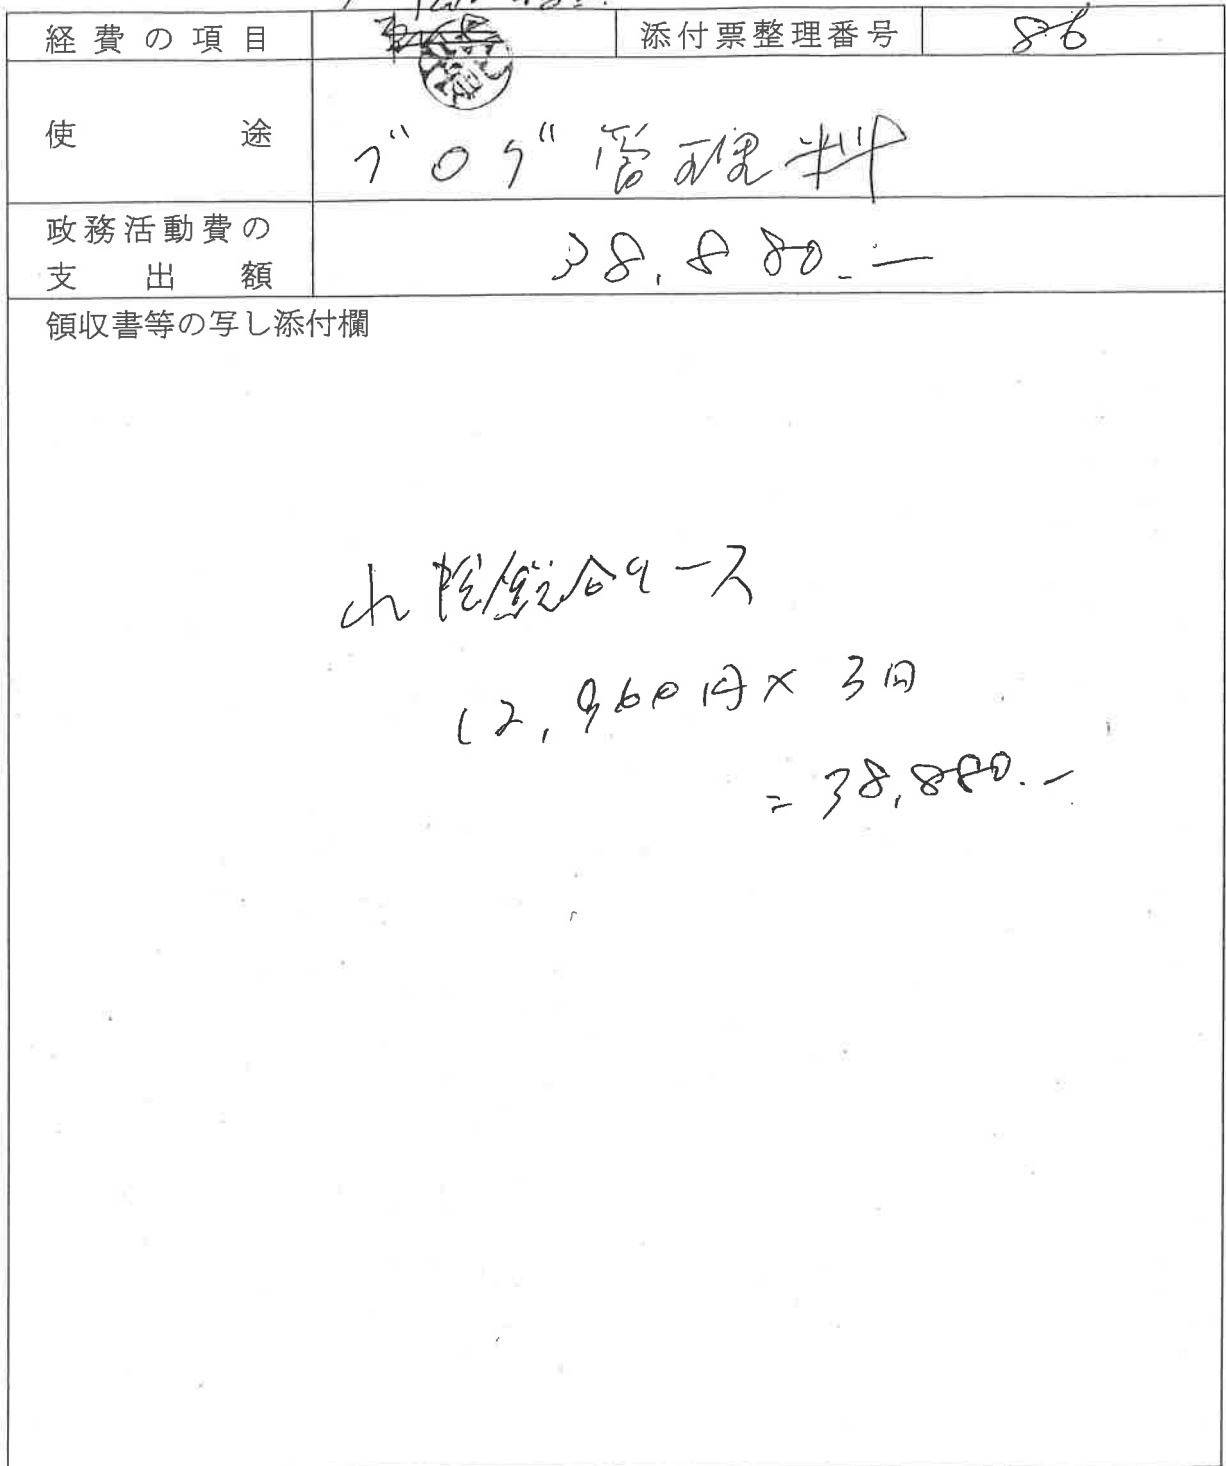 経費の項目 添付票整理番号 86
使途 ブログ管理料
政務活動費の
支出額 38,880.―
領収書等の写し添付欄
山陰総合リース
12,960円×3回
=38,880.―